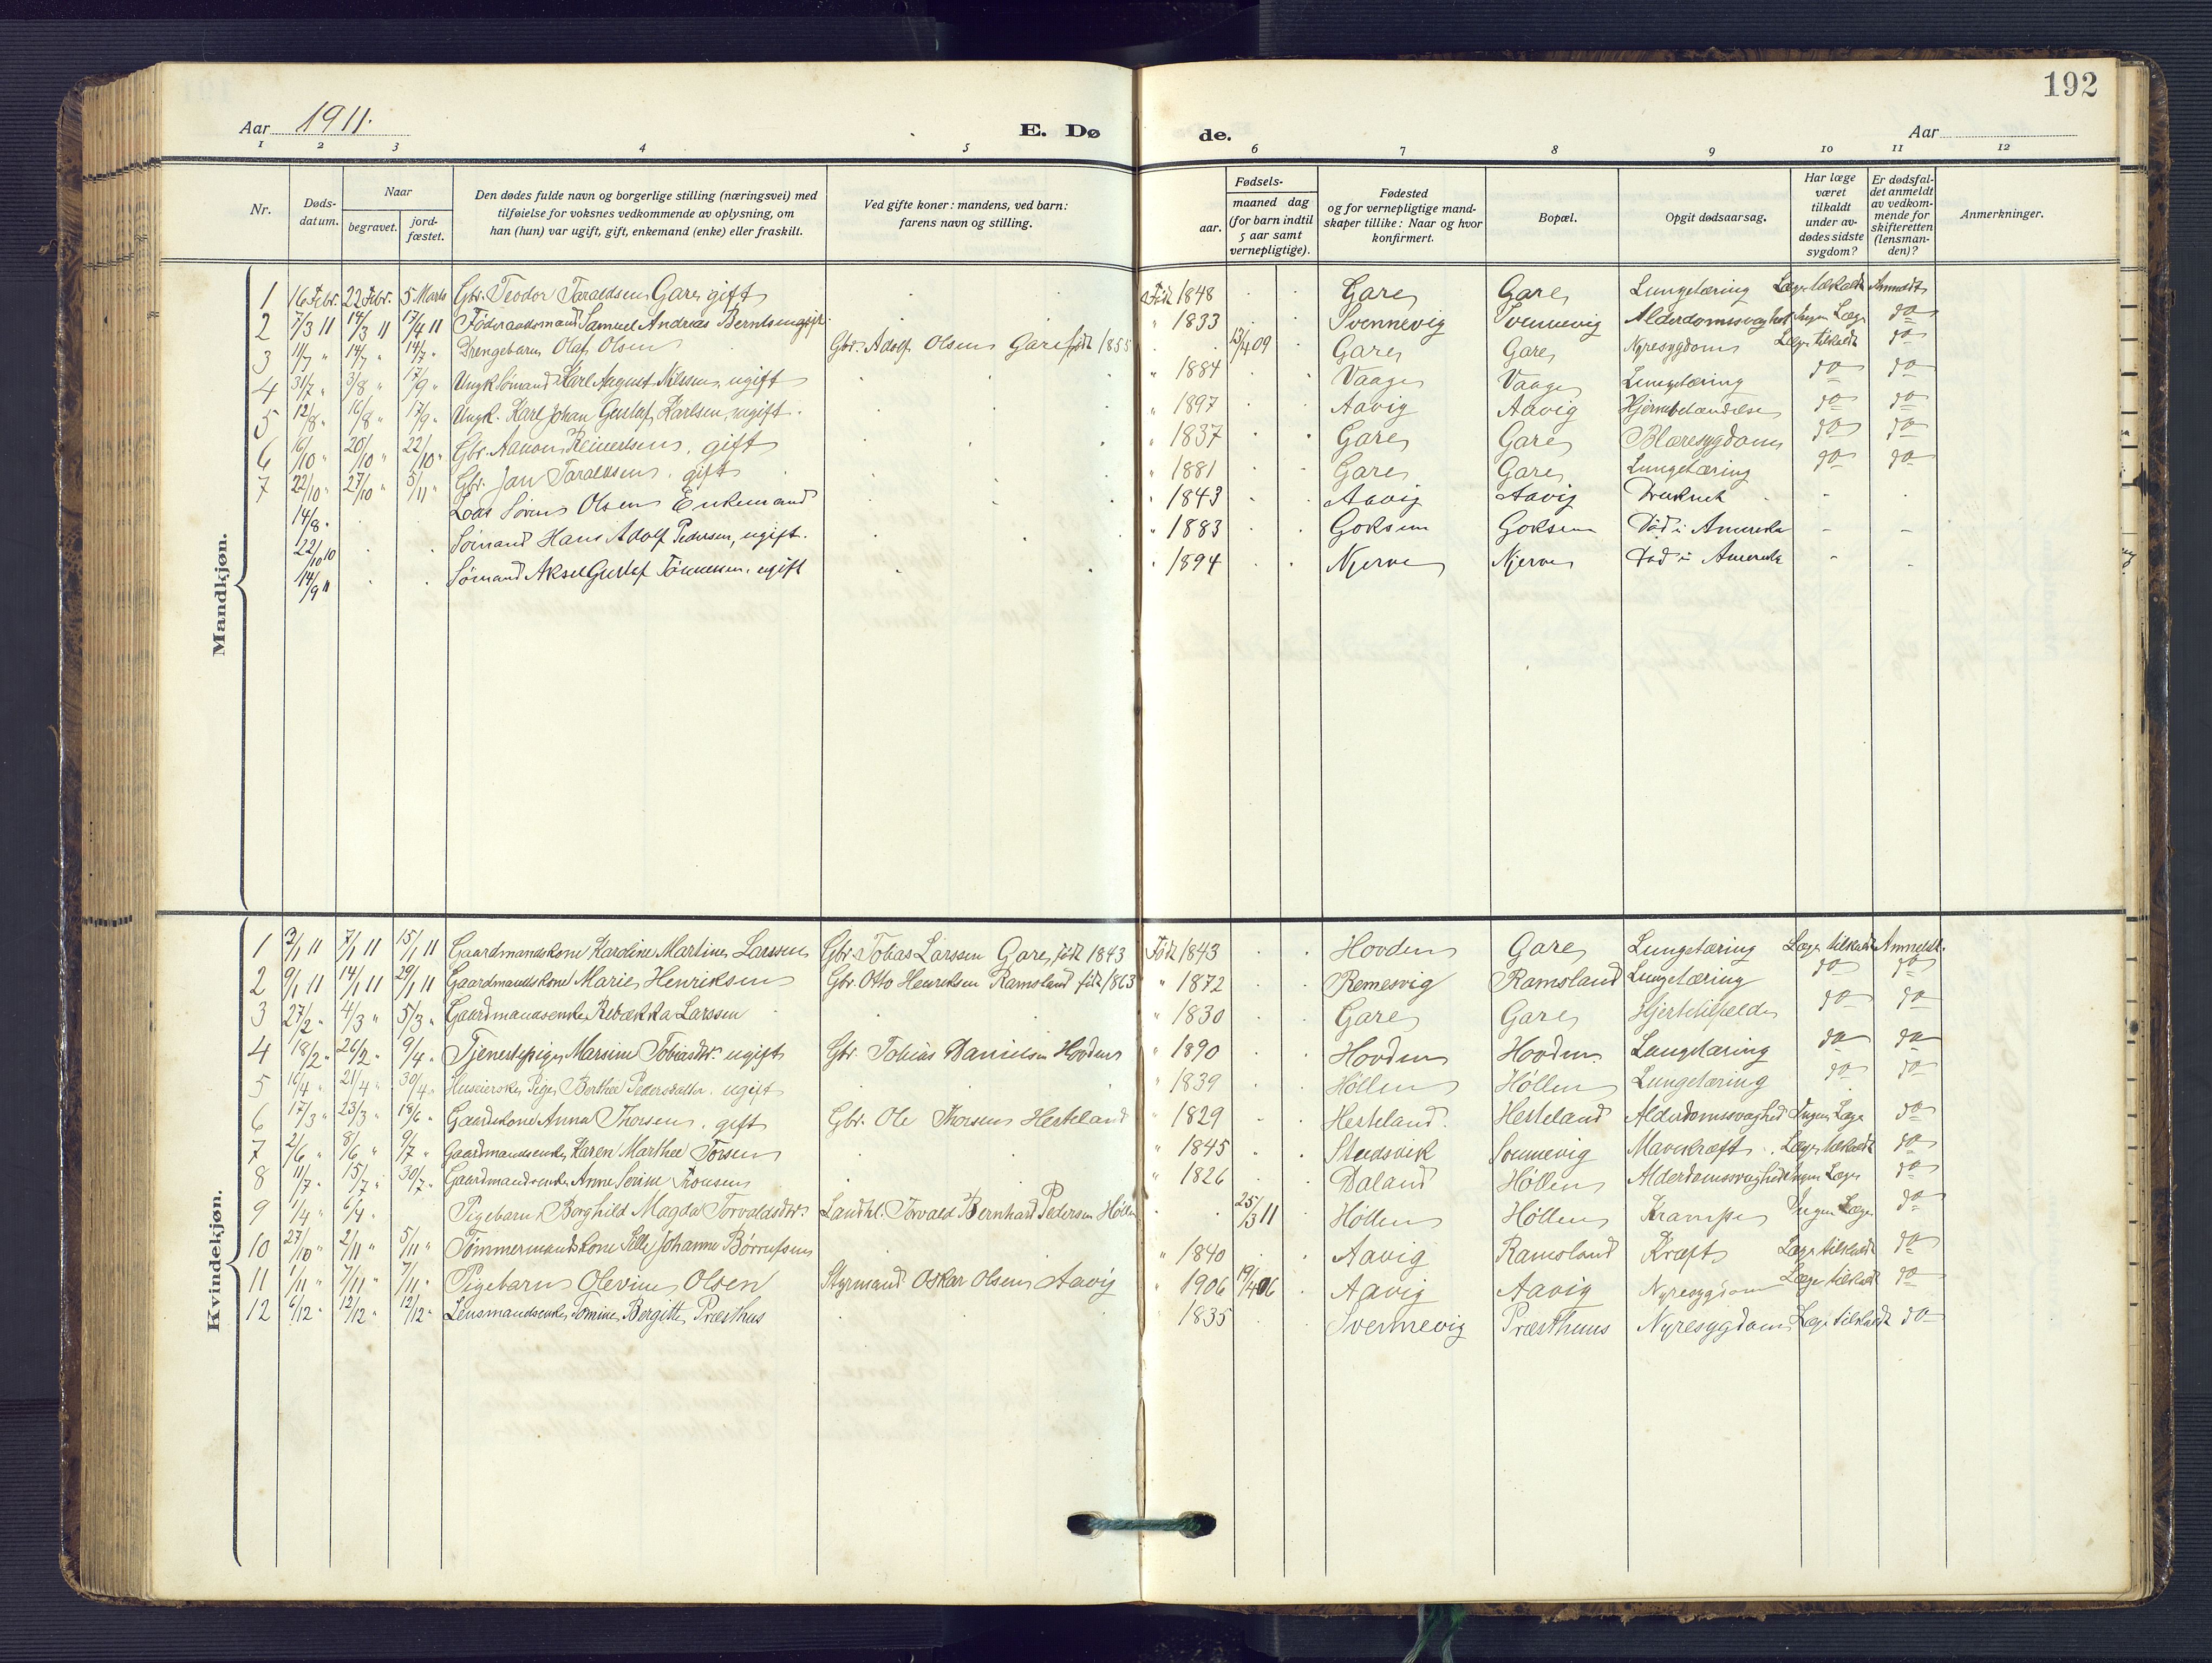 192
Aar 1911.
E. Døde.
Aar
1 2 3 4 5 6 7 8 9 10 11 12
Nr.
Døds-datum.
Naar
begravet.
jord-fæstet.
Den dødes fulde navn og borgerlige stilling (næringsvei) med
tilføielse for voksnes vedkommende av oplysning, om
han (hun) var ugift, gift, enkemand (enke) eller fraskilt.
Ved gifte koner: mandens, ved barn:
farens navn og stilling.
Fødsels-
aar.
maaned dag
(for barn indtil
5 aar samt
vernepligtige).
Fødested
og for vernepligtige mand-
skaper tillike: Naar og hvor
konfirmert.
Bopæl.
Opgit dødsaarsag.
Har læge
været
tilkaldt
under av-
dødes sidste
sygdom?
Er dødsfal-
det anmeldt
av vedkom-
mende for
skifteretten
(lensman-
den)?
Anmerkninger.
Mandkjøn.
1 16 Febr. 22 Febr. 5 Marts Gbr. Teodor Taraldsen Gare, gift Født 1848 Gare Gare Lungetæring Læge tilkaldt Anmeldt
2 7/3 11 14/3 11 17/4 11 Føderaadsmand Samuel Andreas Berntsen gift " 1833 Svennevig Svennevig Alderdomssvaghed Ingen Læge do
3 11/7 " 14/7 " 14/7 " Drengebarn Olaf Olsen Gbr. Adolf Olsen Gare født 1855 13/4 09 Gare Gare Nyresygdom Læge tilkaldt do
4 31/7 " 3/8 " 17/9 " Ungk. Sømand Karl August Nilssen, ugift " 1884 Vaage Vaage Lungetæring do do
5 12/8 " 16/8 " 17/9 " Ungk. Karl Johan Gustaf Karlsen, ugift. " 1897 Aavig Aavig Hjernebetændelse do do
6 16/10 " 20/10 " 22/10 " Gbr. Aanon Reinertsen, gift " 1837 Gare Gare Blæresygdom do do
7 22/10 " 27/10 " 5/11 " Gbr. Jan Taraldsen, gift " 1881 Gare Gare Lungetæring do do
14/8 " Lods Søren Olsen Enkemand " 1843 Aavig Aavig Druknet
22/10 10 Sømand Hans Adolf Pedersen, ugift. " 1883 Goksem Goksem Død i Amerika
14/9 11 Sømand Aksel Gustaf Tønnessen, ugift " 1894 Njerve Njerve Død i Amerika
Kvindekjøn.
1 2/1 11 7/1 11 15/1 11 Gaardmandskone Karoline Martine Larssen Gbr. Tobias Larssen Gare, født 1843 Født 1843 Hovden Gare Lungetæring Læge tilkaldt Anmeldt.
2 9/1 11 14/1 11 29/1 11 Gaardmandskone Marie Henriksen Gbr. Otto Henriksen Ramsland født 1863 " 1872 Remesvig Ramsland Lungetæring do do
3 27/2 " 4/3 " 5/3 " Gaardmandsenke Rebækka Larssen " 1830 Gare Gare Hjertetilfælde do do
4 18/2 " 26/2 " 9/4 " Tjenestepige Marsine Tobiasdtr. ugift Gbr. Tobias Danielsen Hovden " 1890 Hovden Hovden Lungetæring do do
5 16/4 " 21/4 " 30/4 " Huseierske Pige Berthe Pedersdatter. ugift " 1839 Høllen Høllen Lungetæring do do
6 17/3 " 23/3 " 18/6 " Gaardkone Anna Thorsen, gift Gbr. Ole Thorsen Hesteland " 1829 Hesteland. Hesteland Alderdomssvaghed Ingen Læge do
7 2/6 " 8/6 " 9/7 " Gaardmandsenke Karen Marthe Torsen " 1845 Stedsvik Svennevig Mavekræft Læge tilkaldt do
8 11/7 " 15/7 " 30/7 " Gaardmandsenke Anne Serine Tronsen " 1826 Daland Høllen Alderdomssvaghed Ingen Læge do
9 1/4 " 6/4 " Pigebarn Borghild Magda Torvaldsdtr. Landhl. Torvald Bernhard Pedersen Høllen 25/3 11 Høllen Høllen Krampe Ingen Læge do
10 27/10 " 2/11 " 5/11 " Tømmermandskone Sille Johanne Børrufsen " 1840 Aavig Ramsland Kræft Læge tilkaldt do
11 1/11 " 7/11 " 7/11 " Pigebarn Olevine Olsen Styrmand Oskar Olsen Aavig " 1906 19/4 06 Aavig Aavig Nyresygdom Læge tilkaldt do
12 6/12 " 12/12 " 12/12 " Lensmandsenke Tomine Bergitte Præsthus " 1835 Svennevig Præsthuus Nyresygdom Læge tilkaldt do